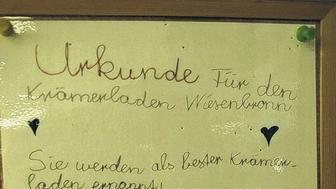 Urkunde Für den
Krämerladen Wiesenbronn
Sie werden als bester Krämer-
laden ernannt!